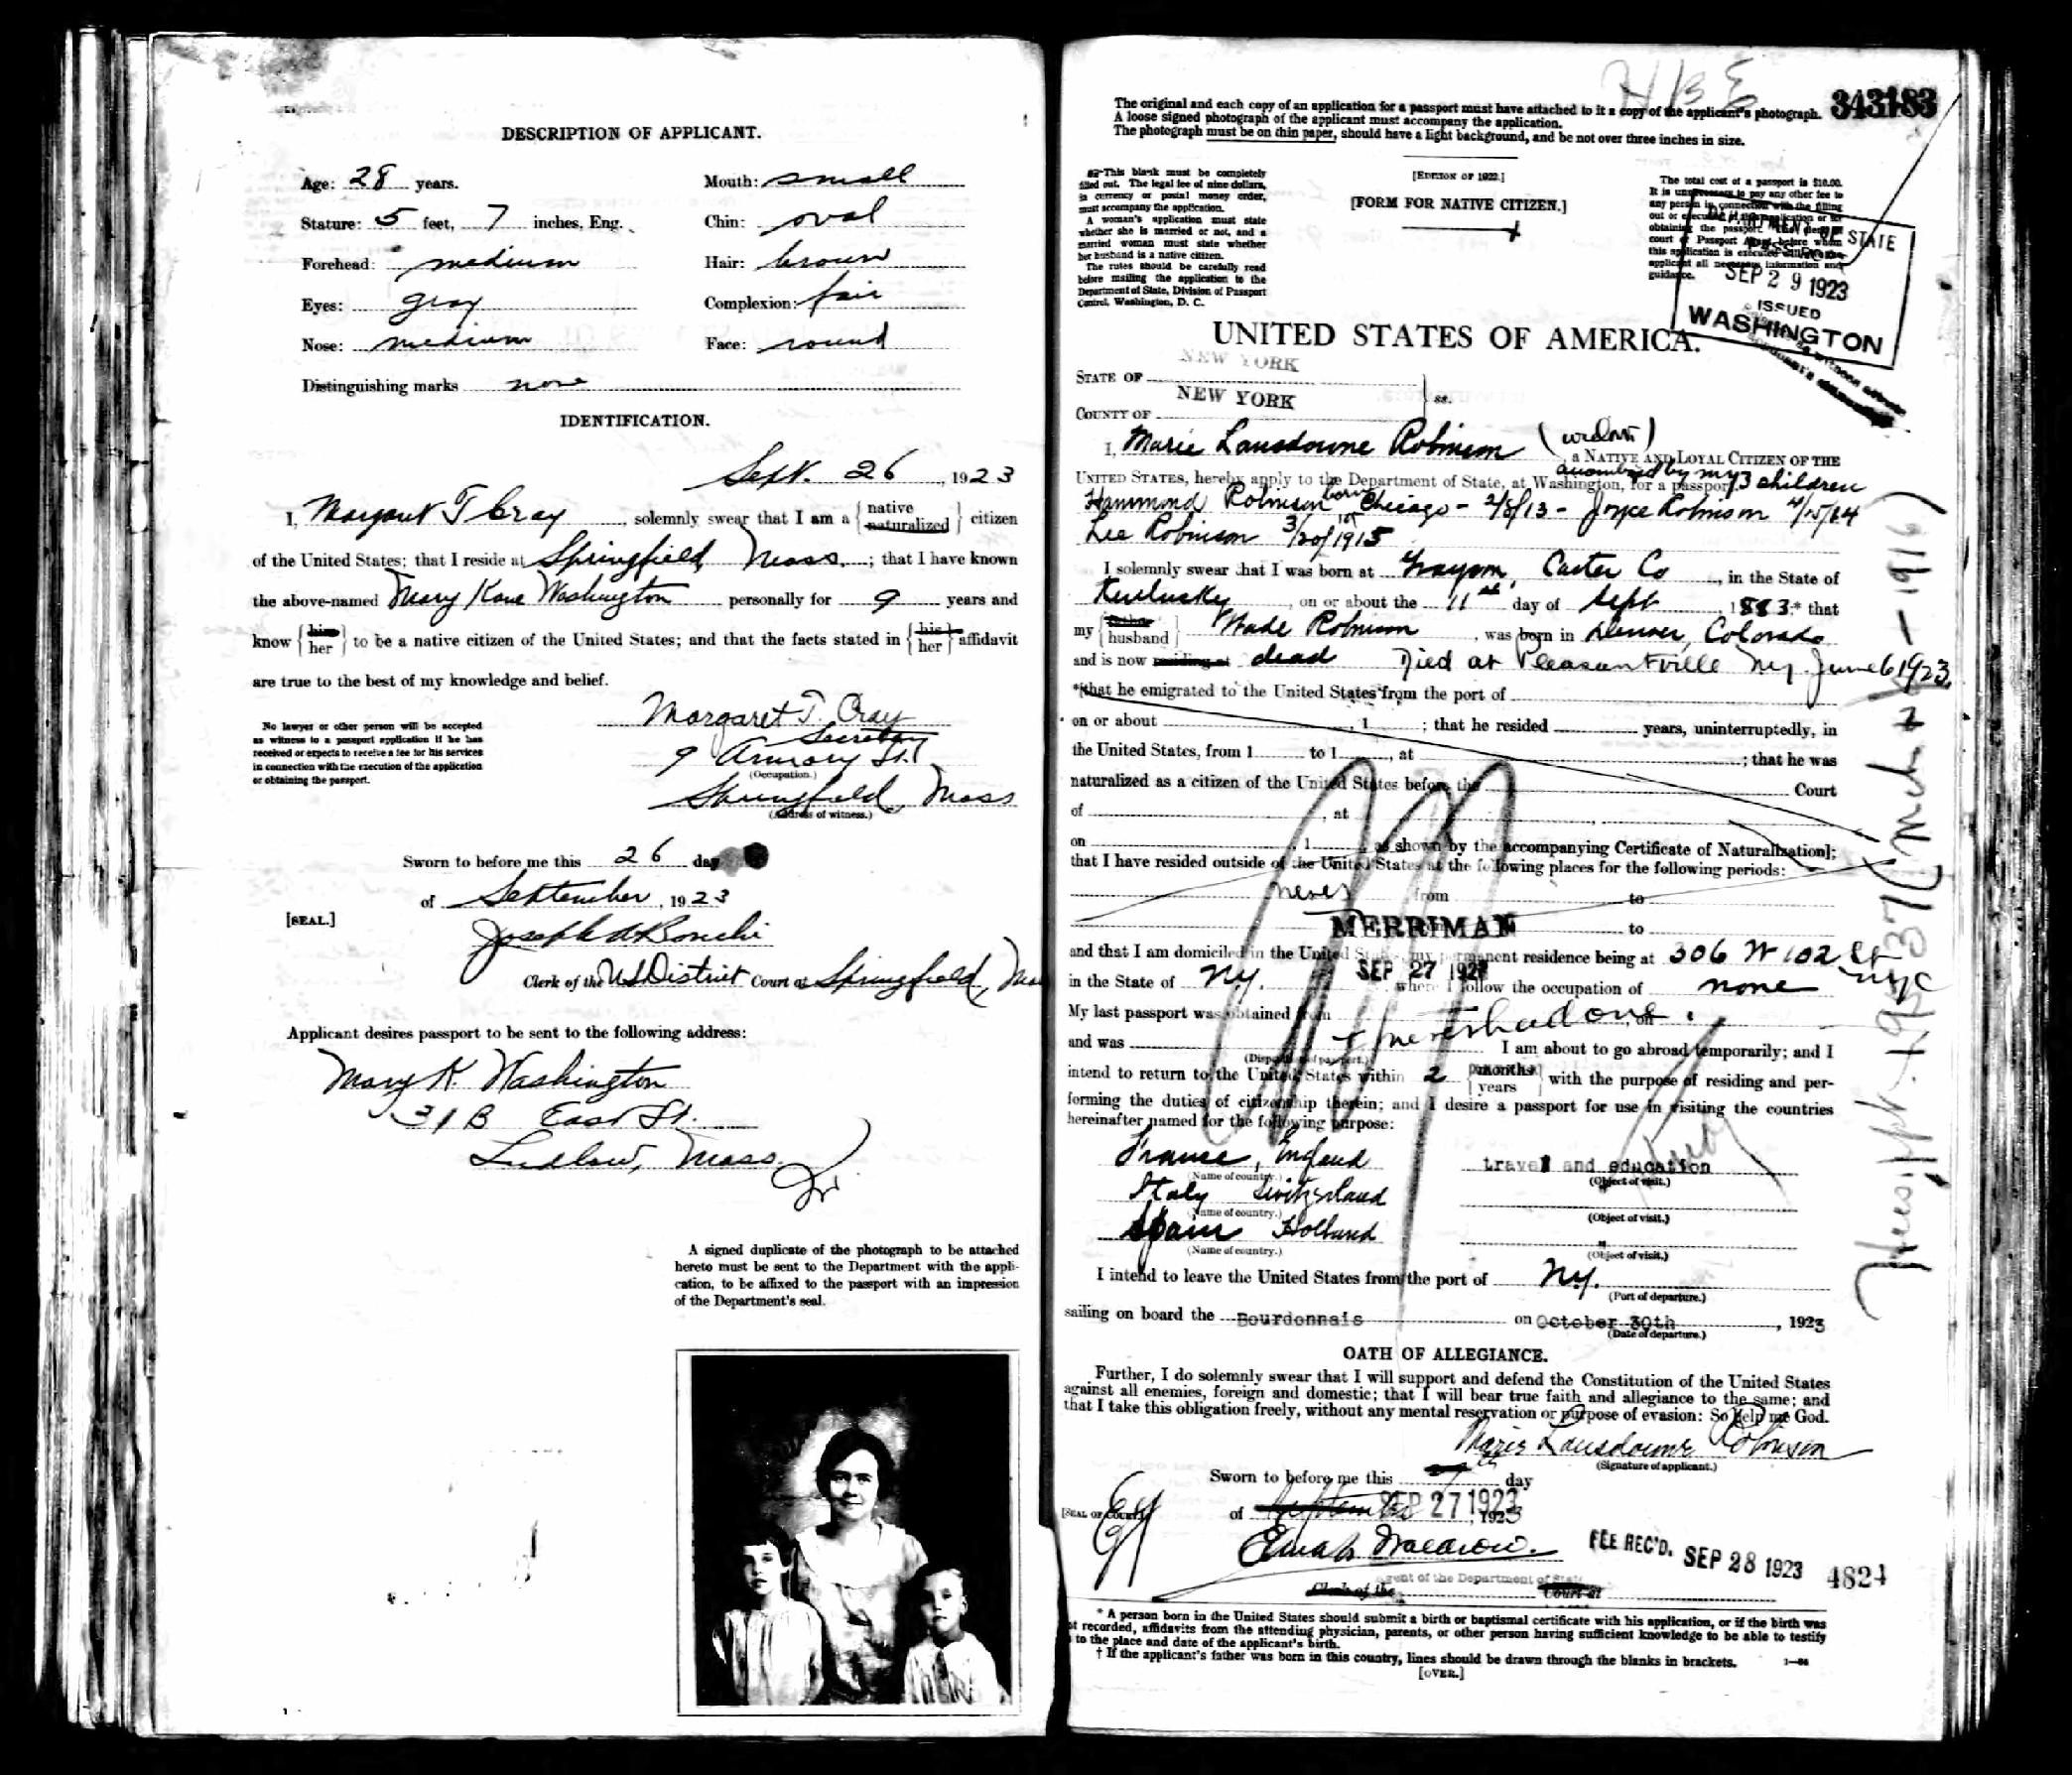 DESCRIPTION OF APPLICANT.
Age: 28 years. Mouth: small
Stature: 5 feet, 7 inches, Eng. Chin: oval
Forehead: medium Hair: brown
Eyes: gray Complexion: fair
Nose: medium Face: round
Distinguishing marks none
IDENTIFICATION.
Sept. 26, 1923
I, Margaret T Cray, solemnly swear that I am a {native naturalized} citizen
of the United States; that I reside at Springfield Mass.; that I have known
the above-named Mary Kane Washington personally for 9 years and
know {him her} to be a native citizen of the United States; and that the facts stated in {his her} affidavit
are true to the best of my knowledge and belief.
No lawyer or other person will be accepted
as witness to a passport application if he has
received or expects to receive a fee for his services
in connection with the execution of the application
or obtaining the passport.
Margaret T. Cray
Secretary
9 Armory St.
(Occupation.)
Springfield, Mass
(Address of witness.)
Sworn to before me this 26 day
of September, 1923
[SEAL.]
Joseph
Clerk of the US District Court at Springfield,
Applicant desires passport to be sent to the following address:
Mary K. Washington
31B East St.
Ludlow, Mass.
A signed duplicate of the photograph to be attached
hereto must be sent to the Department with the appli-
cation, to be affixed to the passport with an impression
of the Department's seal.
343183
The original and each copy of an application for a passport must have attached to it a copy of the applicant's photograph.
A loose signed photograph of the applicant must accompany the application.
The photograph must be on thin paper, should have a light background, and be not over three inches in size.
This blank must be completely
filled out. The legal fee of nine dollars,
in currency or postal money order,
must accompany the application.
A woman's application must state
whether she is married or not, and a
married woman must state whether
her husband is a native citizen.
The rules should be carefully read
before mailing the application to the
Department of State, Division of Passport
Control, Washington, D. C.
[EDITION OF 1922.]
[FORM FOR NATIVE CITIZEN.]
The total cost of a passport is $10.00.
It is unnecessary to pay any other fee to
any person in connection with the filling
out or
obtaining the passport.
court or Passport Agent before whom
this application is executed will
applicant all necessary information and
guidance.
DEPARTMENT OF STATE
SEP 29 1923
ISSUED
WASHINGTON
UNITED STATES OF AMERICA.
NEW YORK
STATE OF
NEW YORK
COUNTY OF } ss.
I, Marie Lansdowne Robinson (widow), a NATIVE AND LOYAL CITIZEN OF THE
UNITED STATES, hereby apply to the Department of State, at Washington, for a passport accompanied by my 3 children
Hammond Robinson born Chicago - 2/8/13 - Joyce Robinson
Lee Robinson 3/20/1915
I solemnly swear that I was born at Grayson, Carter Co, in the State of
Kentucky, on or about the 11th day of Sept, 1883;* that
my {father husband} Wade Robinson, was born in Denver, Colorado
and is now residing at dead Died at Pleasantville NY. June 6 1923,
*[that he emigrated to the United States from the port of
on or about , 1 ; that he resided years, uninterruptedly, in
the United States, from 1 to 1 , at ; that he was
naturalized as a citizen of the United States before the Court
of , at
on , 1 , as shown by the accompanying Certificate of Naturalization];
that I have resided outside of the United States at the following places for the following periods:
never from to
MERRIMAN to
and that I am domiciled in the United States, my permanent residence being at 306 W 102 St
NYC
in the State of NY. SEP 27 192 where I follow the occupation of none
My last passport was obtained from never had one, on
and was (Disposition of passport.) I am about to go abroad temporarily; and I
intend to return to the United States within 2 {months years} with the purpose of residing and per-
forming the duties of citizenship therein; and I desire a passport for use in visiting the countries
hereinafter named for the following purpose:
France, England travel and education
(Name of country.) (Object of visit.)
Italy Switzerland
(Name of country.) (Object of visit.)
Spain Holland
(Name of country.) (Object of visit.)
I intend to leave the United States from the port of NY.
(Port of departure.)
sailing on board the Bourdonnais on October 30th, 1923
(Date of departure.)
OATH OF ALLEGIANCE.
Further, I do solemnly swear that I will support and defend the Constitution of the United States
against all enemies, foreign and domestic; that I will bear true faith and allegiance to the same; and
that I take this obligation freely, without any mental reservation or purpose of evasion: So help me God.
Marie Lansdowne Robinson
(Signature of applicant.)
Sworn to before me this day
[SEAL OF COURT.] of September SEP 27 1923, 1923
FEE REC'D. SEP 28 1923 4824
Agent of the Department of State
Clerk of the Court at
* A person born in the United States should submit a birth or baptismal certificate with his application, or if the birth was
not recorded, affidavits from the attending physician, parents, or other person having sufficient knowledge to be able to testify
to the place and date of the applicant's birth.
† If the applicant's father was born in this country, lines should be drawn through the blanks in brackets.
[OVER.]